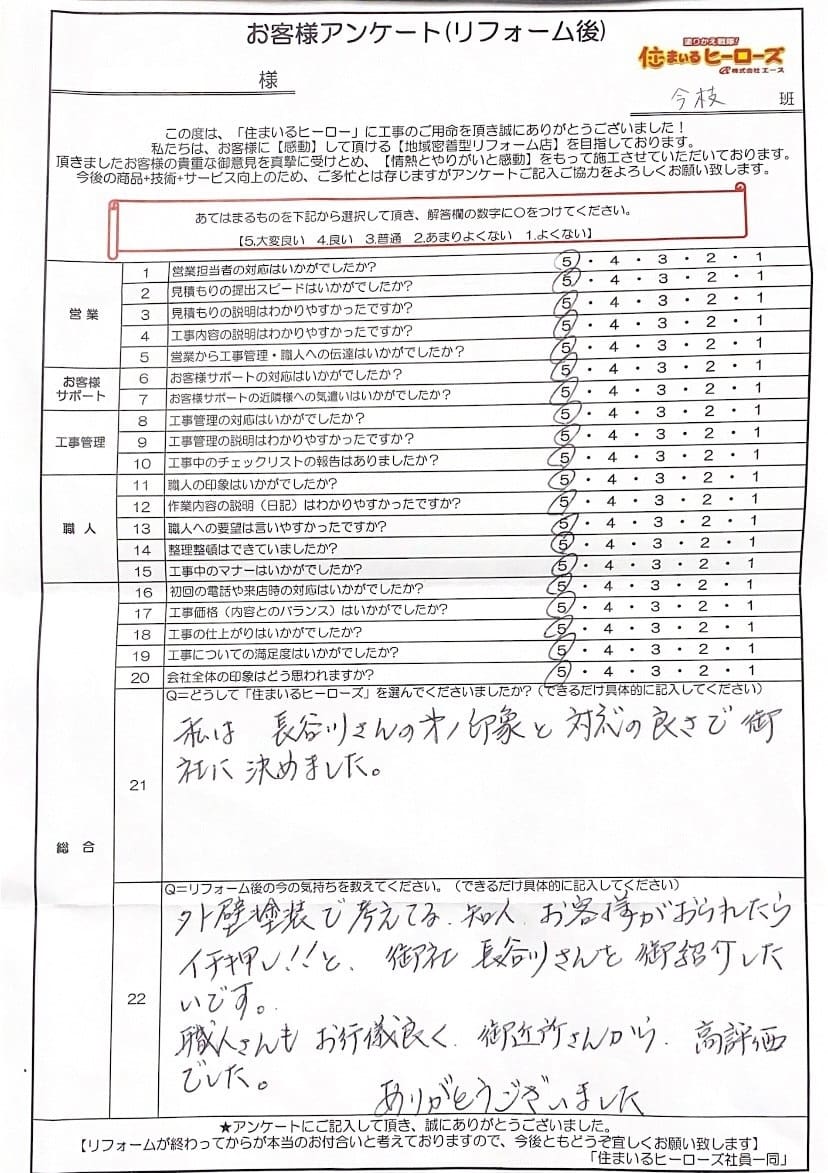 お客様アンケート(リフォーム後)
塗りかえ戦隊!
住まいるヒーローズ
株式会社エース
様
今枝 班
この度は、「住まいるヒーロー」に工事のご用命を頂き誠にありがとうございました!
私たちは、お客様に【感動】して頂ける【地域密着型リフォーム店】を目指しております。
頂きましたお客様の貴重な御意見を真摯に受けとめ、【情熱とやりがいと感動】をもって施工させていただいております。
今後の商品+技術+サービス向上のため、ご多忙とは存じますがアンケートご記入ご協力をよろしくお願い致します。
あてはまるものを下記から選択して頂き、解答欄の数字に○をつけてください。
【5.大変良い 4.良い 3.普通 2.あまりよくない 1.よくない】
営業
1 営業担当者の対応はいかがでしたか? 5・4・3・2・1
2 見積もりの提出スピードはいかがでしたか? 5・4・3・2・1
3 見積もりの説明はわかりやすかったですか? 5・4・3・2・1
4 工事内容の説明はわかりやすかったですか? 5・4・3・2・1
5 営業から工事管理・職人への伝達はいかがでしたか? 5・4・3・2・1
お客様
サポート
6 お客様サポートの対応はいかがでしたか? 5・4・3・2・1
7 お客様サポートの近隣様への気遣いはいかがでしたか? 5・4・3・2・1
工事管理
8 工事管理の対応はいかがでしたか? 5・4・3・2・1
9 工事管理の説明はわかりやすかったですか? 5・4・3・2・1
10 工事中のチェックリストの報告はありましたか? 5・4・3・2・1
職人
11 職人の印象はいかがでしたか? 5・4・3・2・1
12 作業内容の説明(日記)はわかりやすかったですか? 5・4・3・2・1
13 職人への要望は言いやすかったですか? 5・4・3・2・1
14 整理整頓はできていましたか? 5・4・3・2・1
15 工事中のマナーはいかがでしたか? 5・4・3・2・1
総合
16 初回の電話や来店時の対応はいかがでしたか? 5・4・3・2・1
17 工事価格(内容とのバランス)はいかがでしたか? 5・4・3・2・1
18 工事の仕上がりはいかがでしたか? 5・4・3・2・1
19 工事についての満足度はいかがでしたか? 5・4・3・2・1
20 会社全体の印象はどう思われますか? 5・4・3・2・1
21
Q=どうして「住まいるヒーローズ」を選んでくださいましたか?(できるだけ具体的に記入してください)
私は 長谷川さんの才1印象と 対応の良さで 御
社に 決めました。
22
Q=リフォーム後の今の気持ちを教えてください。(できるだけ具体的に記入してください)
外壁塗装で考えてる、知人、お客様がおられたら
イチ押し!!と、 御社 長谷川さんを 御紹介した
いです。
職人さんも お行儀良く、御近所さんから、高評価
でした。
ありがとうございました
★アンケートにご記入して頂き、誠にありがとうございました。
【リフォームが終わってからが本当のお付合いと考えておりますので、今後ともどうぞ宜しくお願い致します】
「住まいるヒーローズ社員一同」